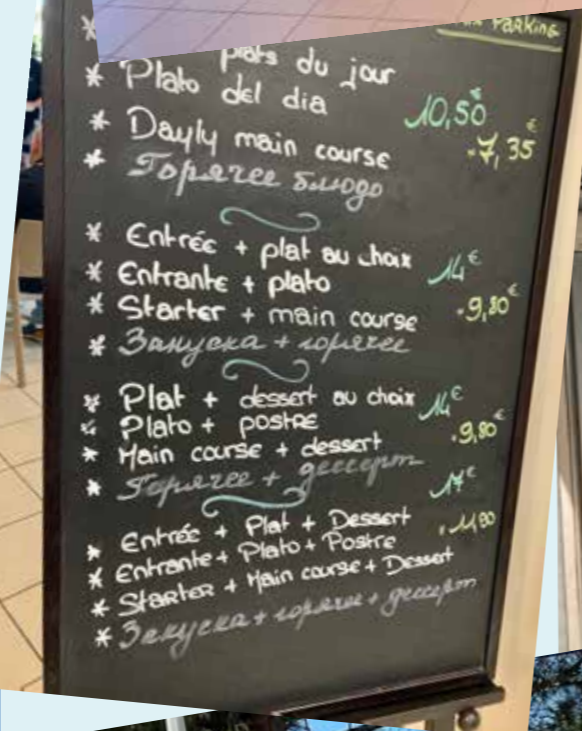 Parking
* plats du jour
* Plato del dia 10,50€
* Dayly main course .7,35€
* Горячее блюдо
* Entrée + plat au choix 14€
* Entrante + plato
* Starter + main course .9,80€
* Закуска + горячее
* Plat + dessert au choix 14€
* Plato + postre .9,80€
* Main course + dessert
* Горячее + десерт 17€
* Entrée + Plat + Dessert
* Entrante + Plato + Postre
* Starter + Main course + Dessert
* Закуска + горячее + десерт